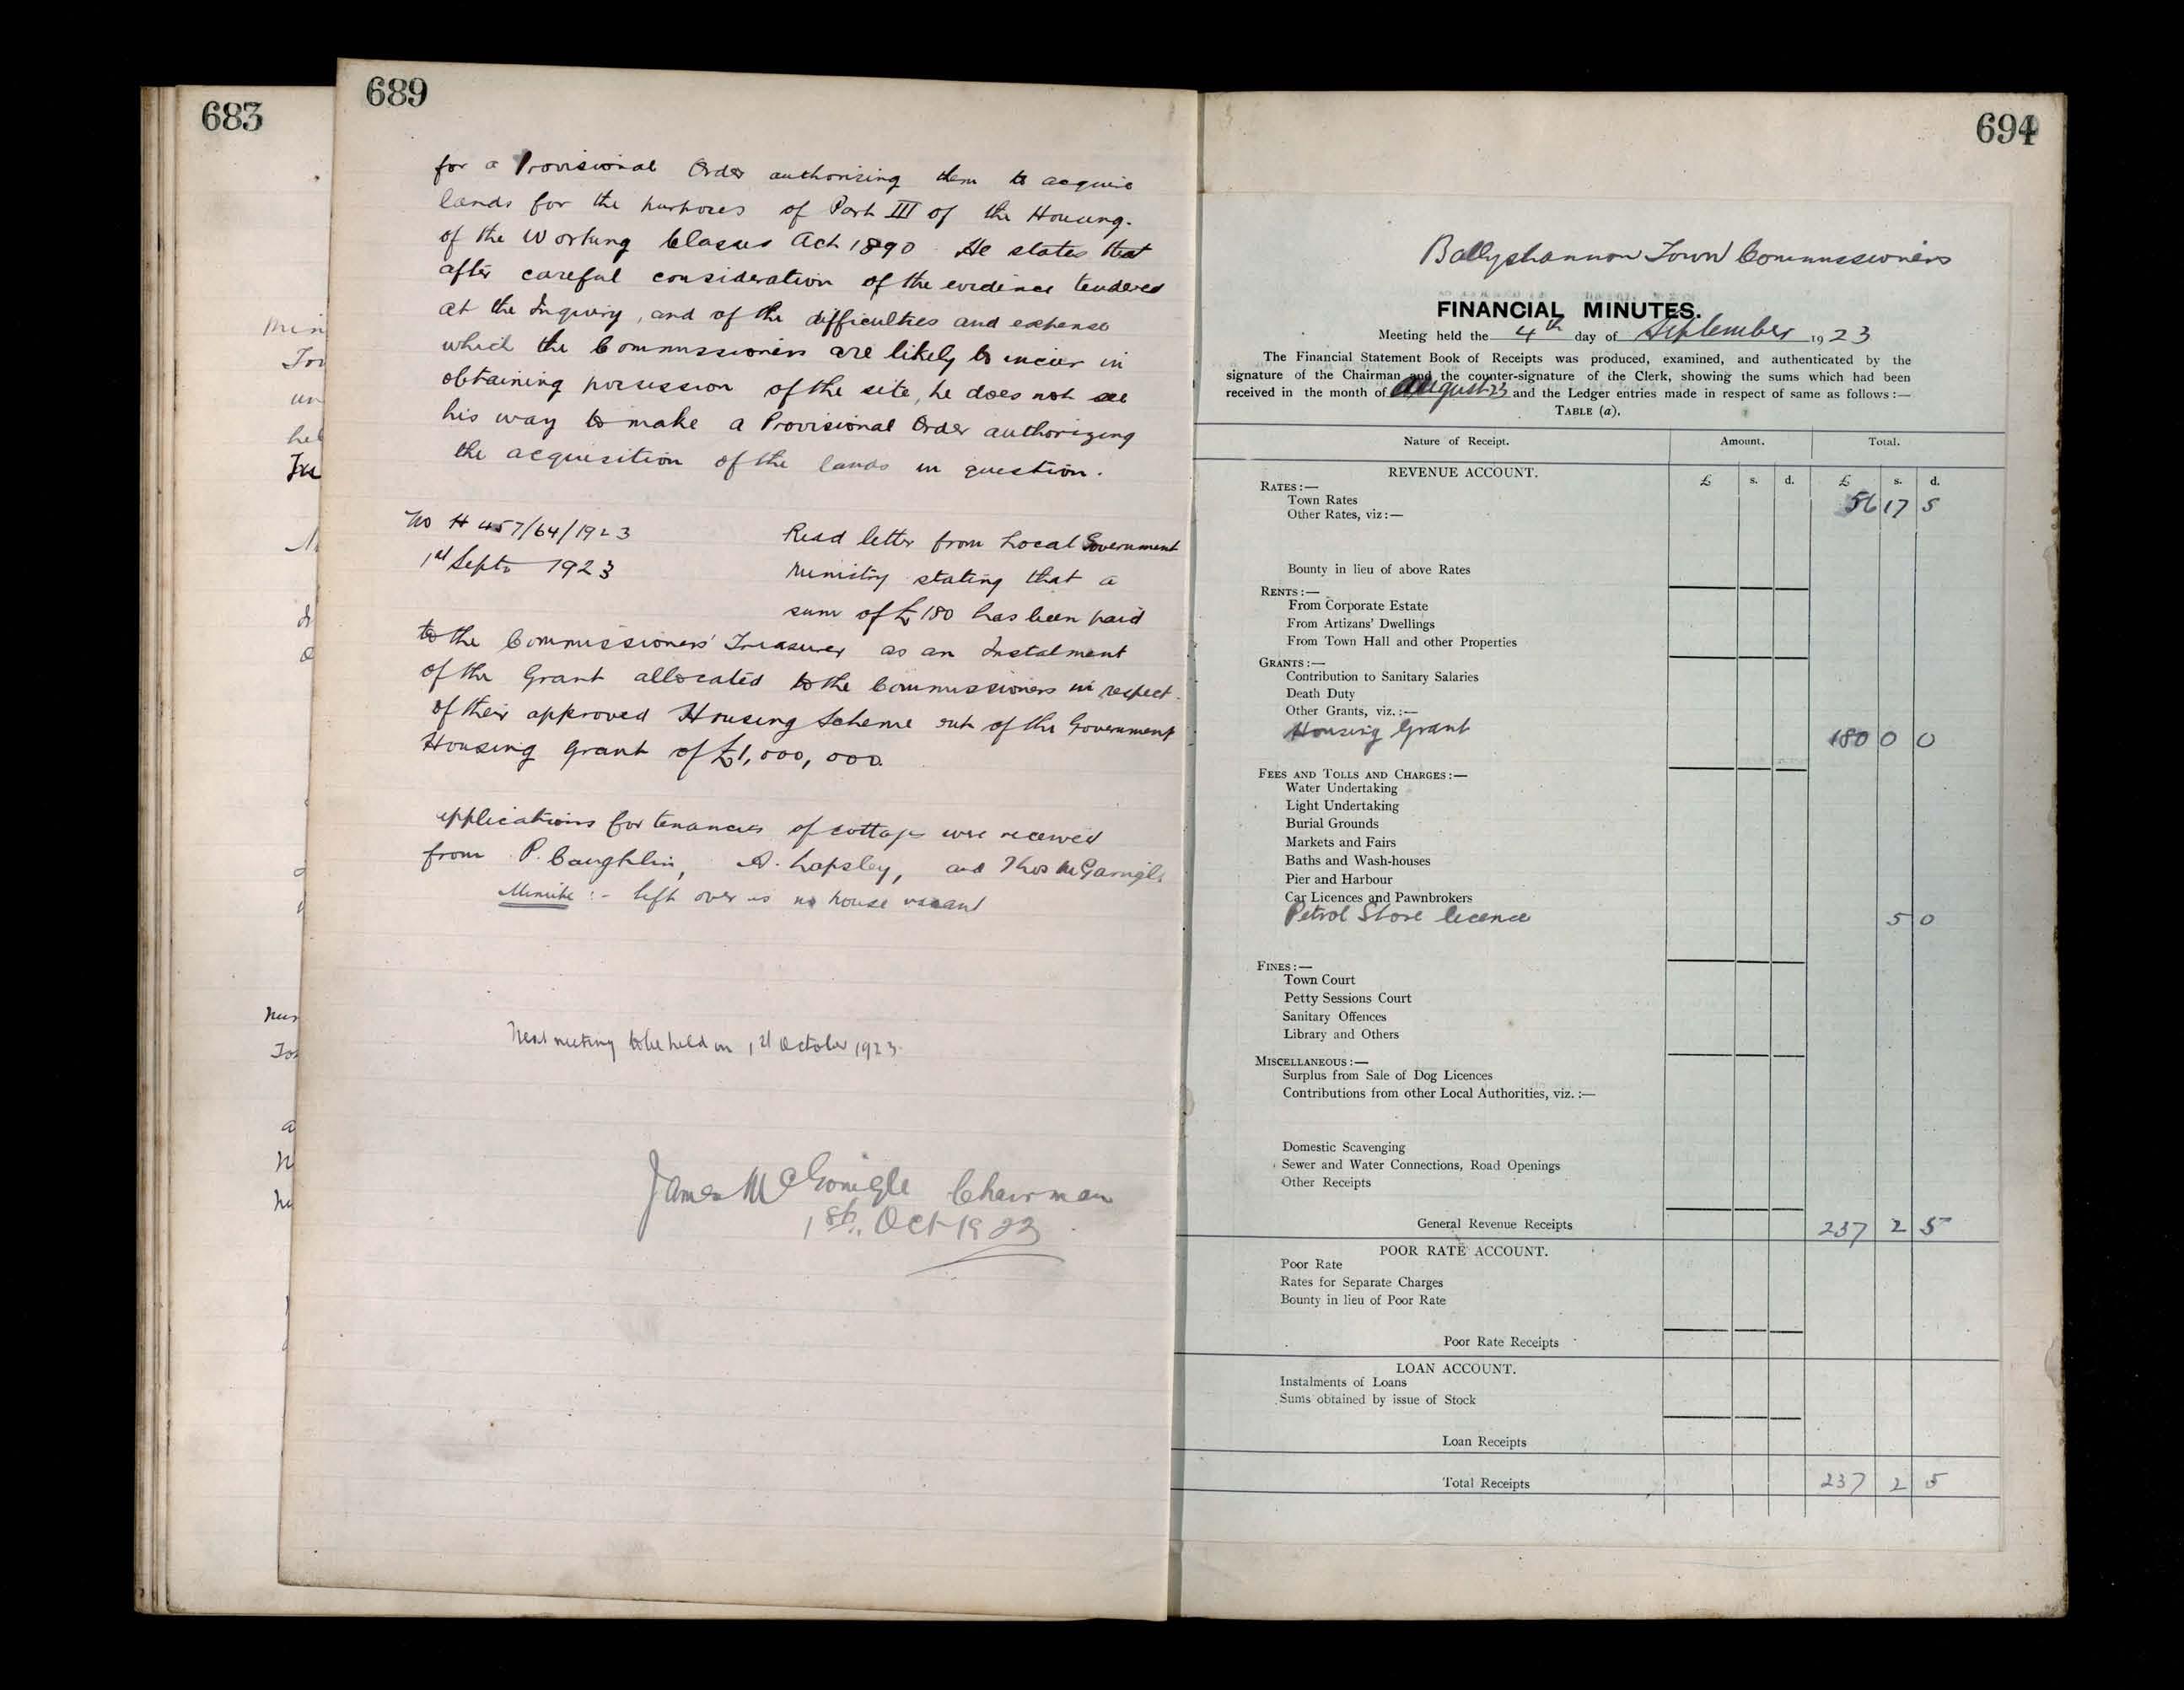 683
689
for a Provisional Order authorising them to acquire
lands for the purposes of Part III of the Housing.
of the Working Classes Act 1890 He states that
after careful consideration of the evidence tendered
at the Inquiry, and of the difficulties and expense
which the Commissioners are likely to incur in
obtaining possession of the site, he does not see
his way to make a Provisional Order authorizing
the acquisition of the lands in question.
No H 457/64/1923
1st Septr 1923
Read letter from Local Government
Ministry stating that a
sum of £180 has been paid
to the Commissioners' Treasurer as an Instalment
of the Grant allocated to the Commissioners in respect
of their approved Housing Scheme out of the Government
Housing Grant of £1,000,000.
applications for tenancies of cottage were received
from P. Caughlin, A. Lapsley, and Thos McGarrigle
Minute :- left over as no house vacant
Next meeting to be held on 1st October 1923.
James McGonigle Chairman
1st. Oct 1923
694
Ballyshannon Town Commissioners
FINANCIAL MINUTES.
Meeting held the 4th day of September 1923
The Financial Statement Book of Receipts was produced, examined, and authenticated by the
signature of the Chairman and the counter-signature of the Clerk, showing the sums which had been
received in the month of August 23 and the Ledger entries made in respect of same as follows :—
TABLE (a).
Nature of Receipt. Amount. Total.
REVENUE ACCOUNT.
£ s. d. £ s. d.
RATES :—
Town Rates 56 17 5
Other Rates, viz :—
Bounty in lieu of above Rates
RENTS :—
From Corporate Estate
From Artizans' Dwellings
From Town Hall and other Properties
GRANTS :—
Contribution to Sanitary Salaries
Death Duty
Other Grants, viz. :—
Housing Grant 180 0 0
FEES AND TOLLS AND CHARGES :—
Water Undertaking
Light Undertaking
Burial Grounds
Markets and Fairs
Baths and Wash-houses
Pier and Harbour
Car Licences and Pawnbrokers
Petrol Store licence 5 0
FINES :—
Town Court
Petty Sessions Court
Sanitary Offences
Library and Others
MISCELLANEOUS :—
Surplus from Sale of Dog Licences
Contributions from other Local Authorities, viz. :—
Domestic Scavenging
Sewer and Water Connections, Road Openings
Other Receipts
General Revenue Receipts 237 2 5
POOR RATE ACCOUNT.
Poor Rate
Rates for Separate Charges
Bounty in lieu of Poor Rate
Poor Rate Receipts
LOAN ACCOUNT.
Instalments of Loans
Sums obtained by issue of Stock
Loan Receipts
Total Receipts 237 2 5